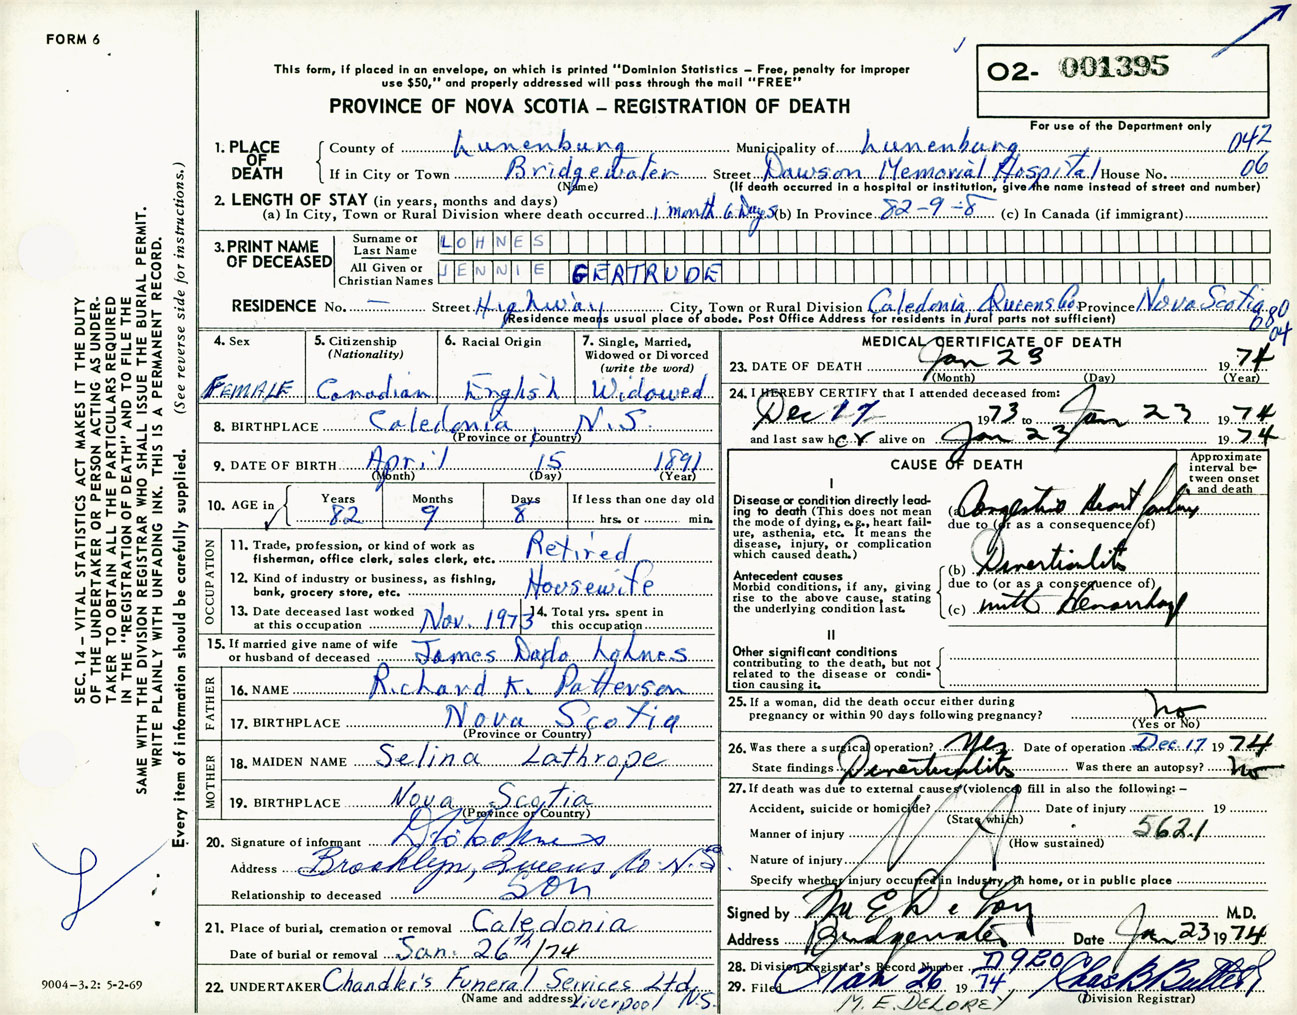 FORM 6
This form, if placed in an envelope, on which is printed "Dominion Statistics – Free, penalty for improper
use $50," and properly addressed will pass through the mail "FREE"
PROVINCE OF NOVA SCOTIA – REGISTRATION OF DEATH
O2- 001395
For use of the Department only
SEC. 14 – VITAL STATISTICS ACT MAKES IT THE DUTY
OF THE UNDERTAKER OR PERSON ACTING AS UNDER-
TAKER TO OBTAIN ALL THE PARTICULARS REQUIRED
IN THE "REGISTRATION OF DEATH" AND TO FILE THE
SAME WITH THE DIVISION REGISTRAR WHO SHALL ISSUE THE BURIAL PERMIT.
WRITE PLAINLY WITH UNFADING INK. THIS IS A PERMANENT RECORD.
Every item of information should be carefully supplied. (See reverse side for instructions.)
1. PLACE OF DEATH
County of Lunenburg Municipality of Lunenburg 042
If in City or Town Bridgewater Street Dawson Memorial Hospital House No. 06
(Name) (If death occurred in a hospital or institution, give the name instead of street and number)
2. LENGTH OF STAY (in years, months and days)
(a) In City, Town or Rural Division where death occurred 1 month 6 Days (b) In Province 82-9-8 (c) In Canada (if immigrant)
3. PRINT NAME OF DECEASED
Surname or Last Name LOHNES
All Given or Christian Names JENNIE GERTRUDE
RESIDENCE No. — Street Highway City, Town or Rural Division Caledonia, Queens Co Province Nova Scotia
(Residence means usual place of abode. Post Office Address for residents in rural parts not sufficient)
680
04
4. Sex FEMALE
5. Citizenship (Nationality) Canadian
6. Racial Origin English
7. Single, Married, Widowed or Divorced (write the word) Widowed
8. BIRTHPLACE Caledonia, N.S.
(Province or Country)
9. DATE OF BIRTH April 15 1891
(Month) (Day) (Year)
10. AGE in Years 82 Months 9 Days 8 If less than one day old hrs. or min.
OCCUPATION
11. Trade, profession, or kind of work as fisherman, office clerk, sales clerk, etc. Retired
12. Kind of industry or business, as fishing, bank, grocery store, etc. Housewife
13. Date deceased last worked at this occupation Nov. 1973 14. Total yrs. spent in this occupation
15. If married give name of wife or husband of deceased James Dado Lohnes
FATHER
16. NAME Richard K. Patterson
17. BIRTHPLACE Nova Scotia
(Province or Country)
MOTHER
18. MAIDEN NAME Selina Lathrope
19. BIRTHPLACE Nova Scotia
(Province or Country)
20. Signature of informant Lohnes
Address Brooklyn, Queens Co. N.S.
Relationship to deceased Son
21. Place of burial, cremation or removal Caledonia
Date of burial or removal Jan. 26th/74
22. UNDERTAKER Chandler's Funeral Services Ltd
(Name and address) Liverpool N.S.
9004-3.2: 5-2-69
MEDICAL CERTIFICATE OF DEATH
23. DATE OF DEATH Jan 23 1974
(Month) (Day) (Year)
24. I HEREBY CERTIFY that I attended deceased from:
Dec 17 1973 to Jan 23 1974
and last saw her alive on Jan 23 1974
CAUSE OF DEATH
Approximate interval between onset and death
I
Disease or condition directly leading to death (This does not mean the mode of dying, e.g., heart failure, asthenia, etc. It means the disease, injury, or complication which caused death.)
(a) Congestive Heart failure
due to (or as a consequence of)
Antecedent causes
Morbid conditions, if any, giving rise to the above cause, stating the underlying condition last.
(b) Diverticulitis
due to (or as a consequence of)
(c) with Hemorrhage
II
Other significant conditions
contributing to the death, but not related to the disease or condition causing it.
25. If a woman, did the death occur either during pregnancy or within 90 days following pregnancy? No
(Yes or No)
26. Was there a surgical operation? Yes Date of operation Dec. 17 1974
State findings Diverticulitis Was there an autopsy? No
27. If death was due to external causes (violence) fill in also the following: –
Accident, suicide or homicide? Date of injury 19
(State which)
Manner of injury 562.1
(How sustained)
Nature of injury
N A
Specify whether injury occurred in Industry, in home, or in public place
Signed by M E DeLory M.D.
Address Bridgewater Date Jan 23 1974
28. Division Registrar's Record Number D920
29. Filed Jan 26 1974 Chas B Butler
(Division Registrar)
M. E. DELOREY